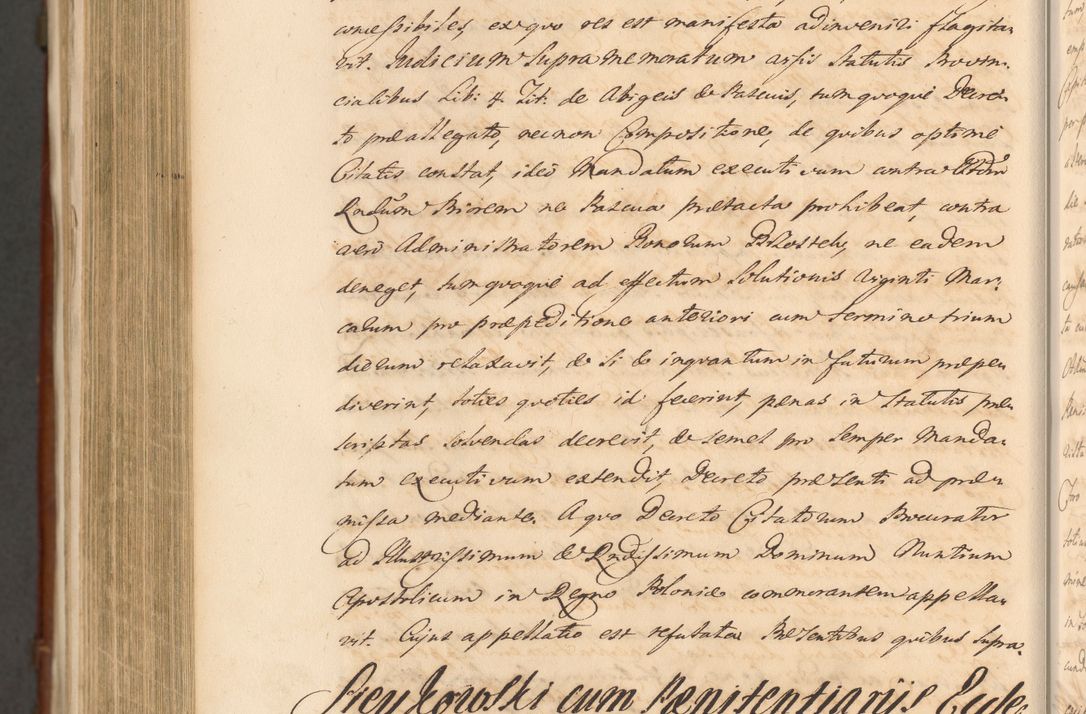 concessibiles, ex quo res est manifesta adinvenili flagita-
vit. Judicium Supra memoratum arsis Statutis Provin-
cialibus Lib: 4. Tit: de Abigeis & Pascuis, tum quoque Decre-
to præallegato, nec non Compositione, de quibus optime
Citatis constat, ideo Mandatum executivum contra
Rndum Priorem ne Pascua prætacta prohibeat, contra
vero Administratorem Bonorum ne eadem
deneget, tum quoque ad effectum Solutionis viginti Mar-
carum pro præpeditione anteriori cum termino trium
dierum relaxavit, & si & inquantum in futurum præpe-
diverint, toties quoties id fecerint, pænas in Statutis præ-
scriptas solvendas decrevit, & semel pro semper Manda-
tum executivum extendit Decreto præsenti ad præ-
missa mediante. A quo Decreto Citatorum Procurator
ad Illustrissimum & Rndissimum Dominum Nuntium
Apostolicum in Regno Poloniæ commorantem appella-
vit. Cujus appellatio est refutata Præsentibus quibus Supra.
cum Pænitentiariis Eccle